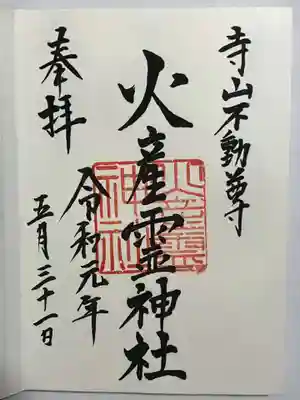 寺山不動尊
火産霊神社
奉拝
令和元年
五月三十一日